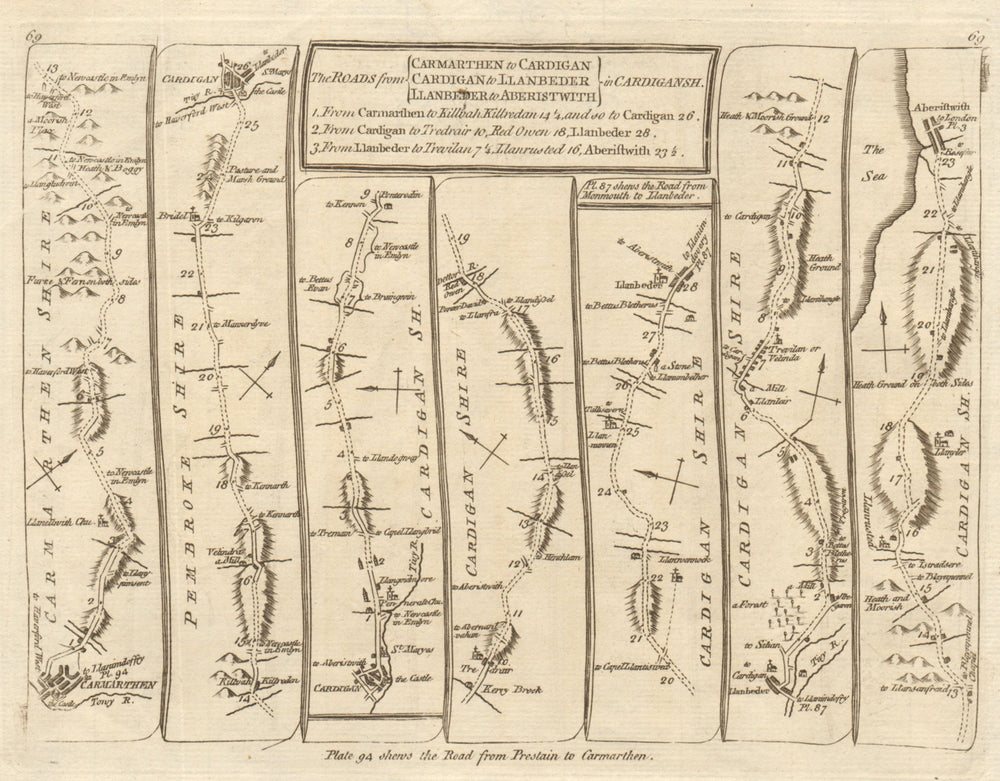 69
69
The ROADS from
CARMARTHEN to CARDIGAN
CARDIGAN to LLANBEDER
LLANBEDER to ABERISTWITH
in CARDIGANSH.
1. From Carmarthen to Killbah Killredan 14 1/4, and so to Cardigan 26.
2. From Cardigan to Tredrair 10, Red Owen 18, Llanbeder 28.
3. From Llanbeder to Trevilan 7 1/4, Llanrusted 16, Aberistwith 23 1/2.
Pl. 87 shews the Road from
Monmouth to Llanbeder.
13
to Newcastle in Emlyn
to Haverford
West
12
a Moorish
to Newcastle in Emlyn
Heath & Boggy
11
10
to
Newcastle
in Emlyn
9
Furze & Fern on both sides
8
to Haverford West
5
to Newcastle
in Emlyn
4
3
to Llany
pumsent
2
1
to Haverford West
to Llanimdoffry
Pl. 94
CARMARTHEN
the Castle
Towy R.
CARMARTHEN SHIRE
CARDIGAN
26
to Llanbeder
St. Marys
the Castle
Tivy R.
to Haverford West
25
Pasture and
Marsh Ground
24
Bridel
to Kilgaron
23
22
21
to Manerdyve
20
19
18
to Kennarth
to Kennarth
17
Velindre
a Mill
16
15
to Newcastle
in Emlyn
Killbah
Killredon
14
PEMBROKE SHIRE
9
Penterodin
to Kennon
8
to Newcastle
in Emlyn
to Bettus
Evan
7
6
5
4
to Llandogway
3
to Tremain
to Capel Llangbrid
2
Tivy R.
to Newcastle
in Emlyn
1
St. Marys
to Aberistwith
CARDIGAN
the Castle
CARDIGAN SH.
19
R.
18
Red
Owen
to Llandyssel
to Llanfra
16
15
14
13
12
Henchlam
to Aberistwith
11
10
Tredrair
Kerry Brook
CARDIGAN SHIRE
to Aberistwith
to Llanim
dovery
Pl. 87
Llanbeder
28
to Bettus Bletherus
27
to Bettus Bletherus
a Stone
to Llanambether
26
25
24
23
Llanwonnock
22
21
to Capel Llantisilued
20
CARDIGAN SHIRE
Heath & Moorish Ground
12
11
to Cardigan
10
Heath
Ground
9
8
Trevilan or
Velinda
7
a Mill
Llanleir
6
5
4
3
to
Bettus
Blethe
rus
a Mill
2
a Forest
1
to Silian
Tivy R.
to
Cardigan
Llanbeder
to Llanimdefry
Pl. 87
CARDIGAN SHIRE
The
Sea
Aberistwith
to London
Pl. 3
23
22
21
20
Heath Ground on both Sides
19
18
17
Llanrusted
16
to Istradsere
to Blaynpennel
15
Heath and
Moorish
14
to Llansanfraid
13
CARDIGAN SH.
Plate 94 shews the Road from Prestain to Carmarthen.